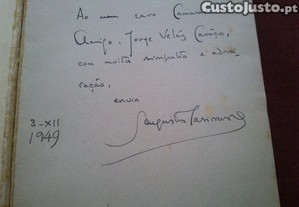 CustoJusto.pt
Ao meu caro Camarada
Amigo, Jorge Velez Caroço,
com muita simpatia e admi-
ração,
envia
Augusto Casimiro
3-XII
1949